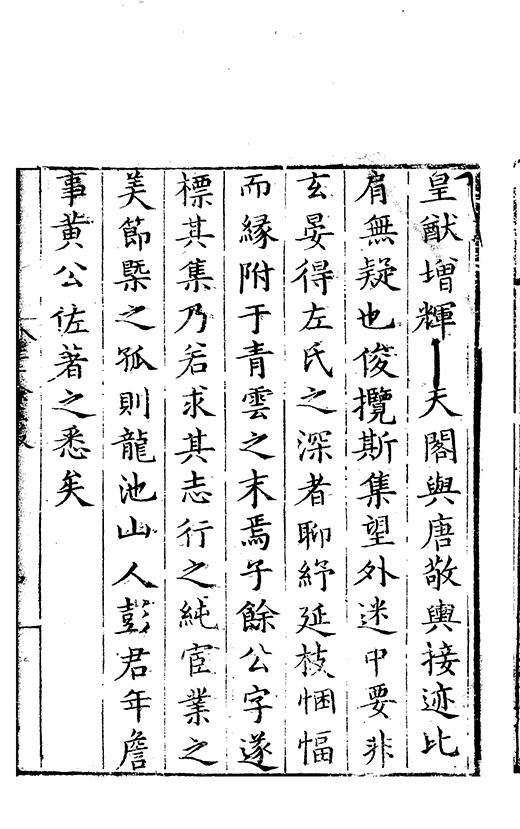 皇猷增輝天閣與唐敬輿接迹比
肩無疑也俊攬斯集望外迷中要非
玄晏得左氏之深者聊紓延枝悃愊
而緣附于青雲之末焉子餘公字遂
標其集乃若求其志行之純宦業之
美節槩之孤則龍池山人彭君年詹
事黄公佐著之悉矣